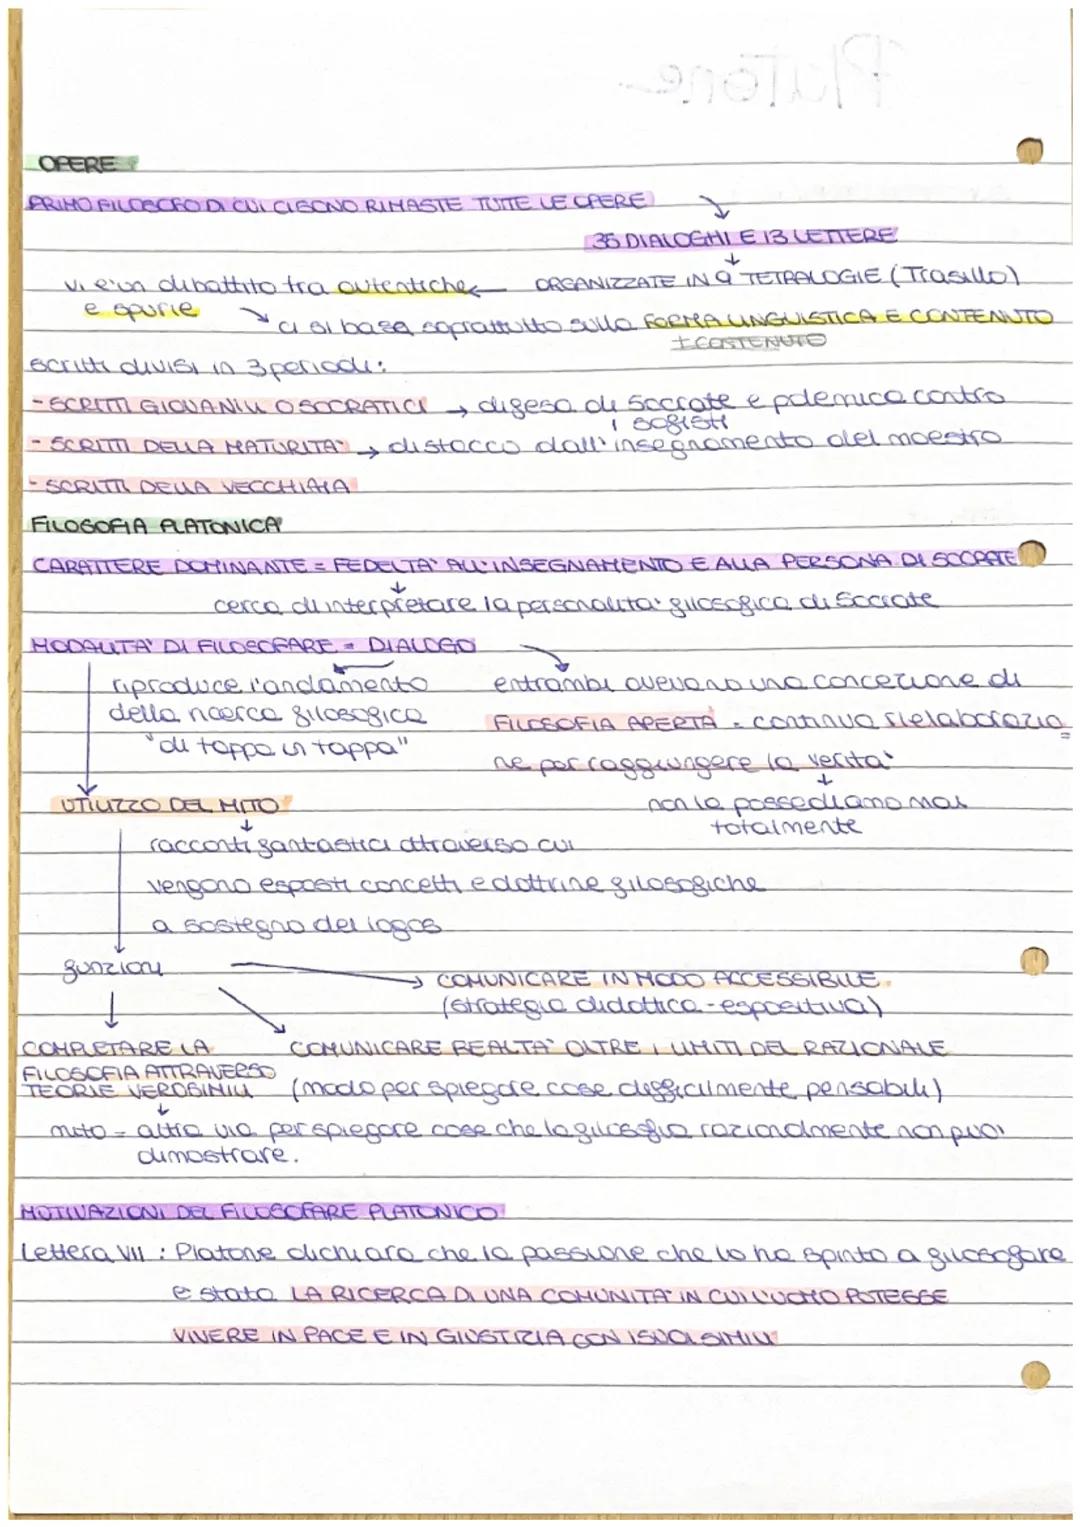 Platone
OPERE:
PRIMO FILOSOFO DI CUI CI SONO RIMASTE TUTTE LE OPERE
36 DIALOGHI E 13 LETTERE
vi è un dibattito tra autentiche ORGANIZZATE IN 9 TETRALOGIE (Trasillo)
e spurie
ci si basa soprattutto sulla FORMA LINGUISTICA E CONTENUTO
scritti divisi in 3 periodi:
- SCRITTI GIOVANILI O SOCRATICI → difesa di Socrate e polemica contro
i sofisti
- SCRITTI DELLA MATURITA' → distacco dall'insegnamento del maestro
- SCRITTI DELLA VECCHIAIA
FILOSOFIA PLATONICA
CARATTERE DOMINANTE = FEDELTA' ALL'INSEGNAMENTO E ALLA PERSONA DI SOCRATE
cerca di interpretare la personalita' filosofica di Socrate
MODALITA' DI FILOSOFARE = DIALOGO
riproduce l'andamento entrambi avevano una concezione di
della ricerca filosofica FILOSOFIA APERTA = continua rielaborazio=
"di tappa in tappa" ne per raggiungere la verita'
UTILIZZO DEL MITO non la possediamo mai
totalmente
racconti fantastici attraverso cui
vengono esposti concetti e dottrine filosofiche
a sostegno del logos
funzioni
COMUNICARE IN MODO ACCESSIBILE
(strategia didattica-espositiva)
COMPLETARE LA COMUNICARE REALTA' OLTRE I LIMITI DEL RAZIONALE
FILOSOFIA ATTRAVERSO
TEORIE VEROSIMILI (modo per spiegare cose difficilmente pensabili)
mito = altra via per spiegare cose che la filosofia razionalmente non puo'
dimostrare.
MOTIVAZIONI DEL FILOSOFARE PLATONICO
Lettera VII : Platone dichiara che la passione che lo ha spinto a filosofare
e stata LA RICERCA DI UNA COMUNITA' IN CUI L'UOMO POTESSE
VIVERE IN PACE E IN GIUSTIZIA CON I SUOI SIMILI